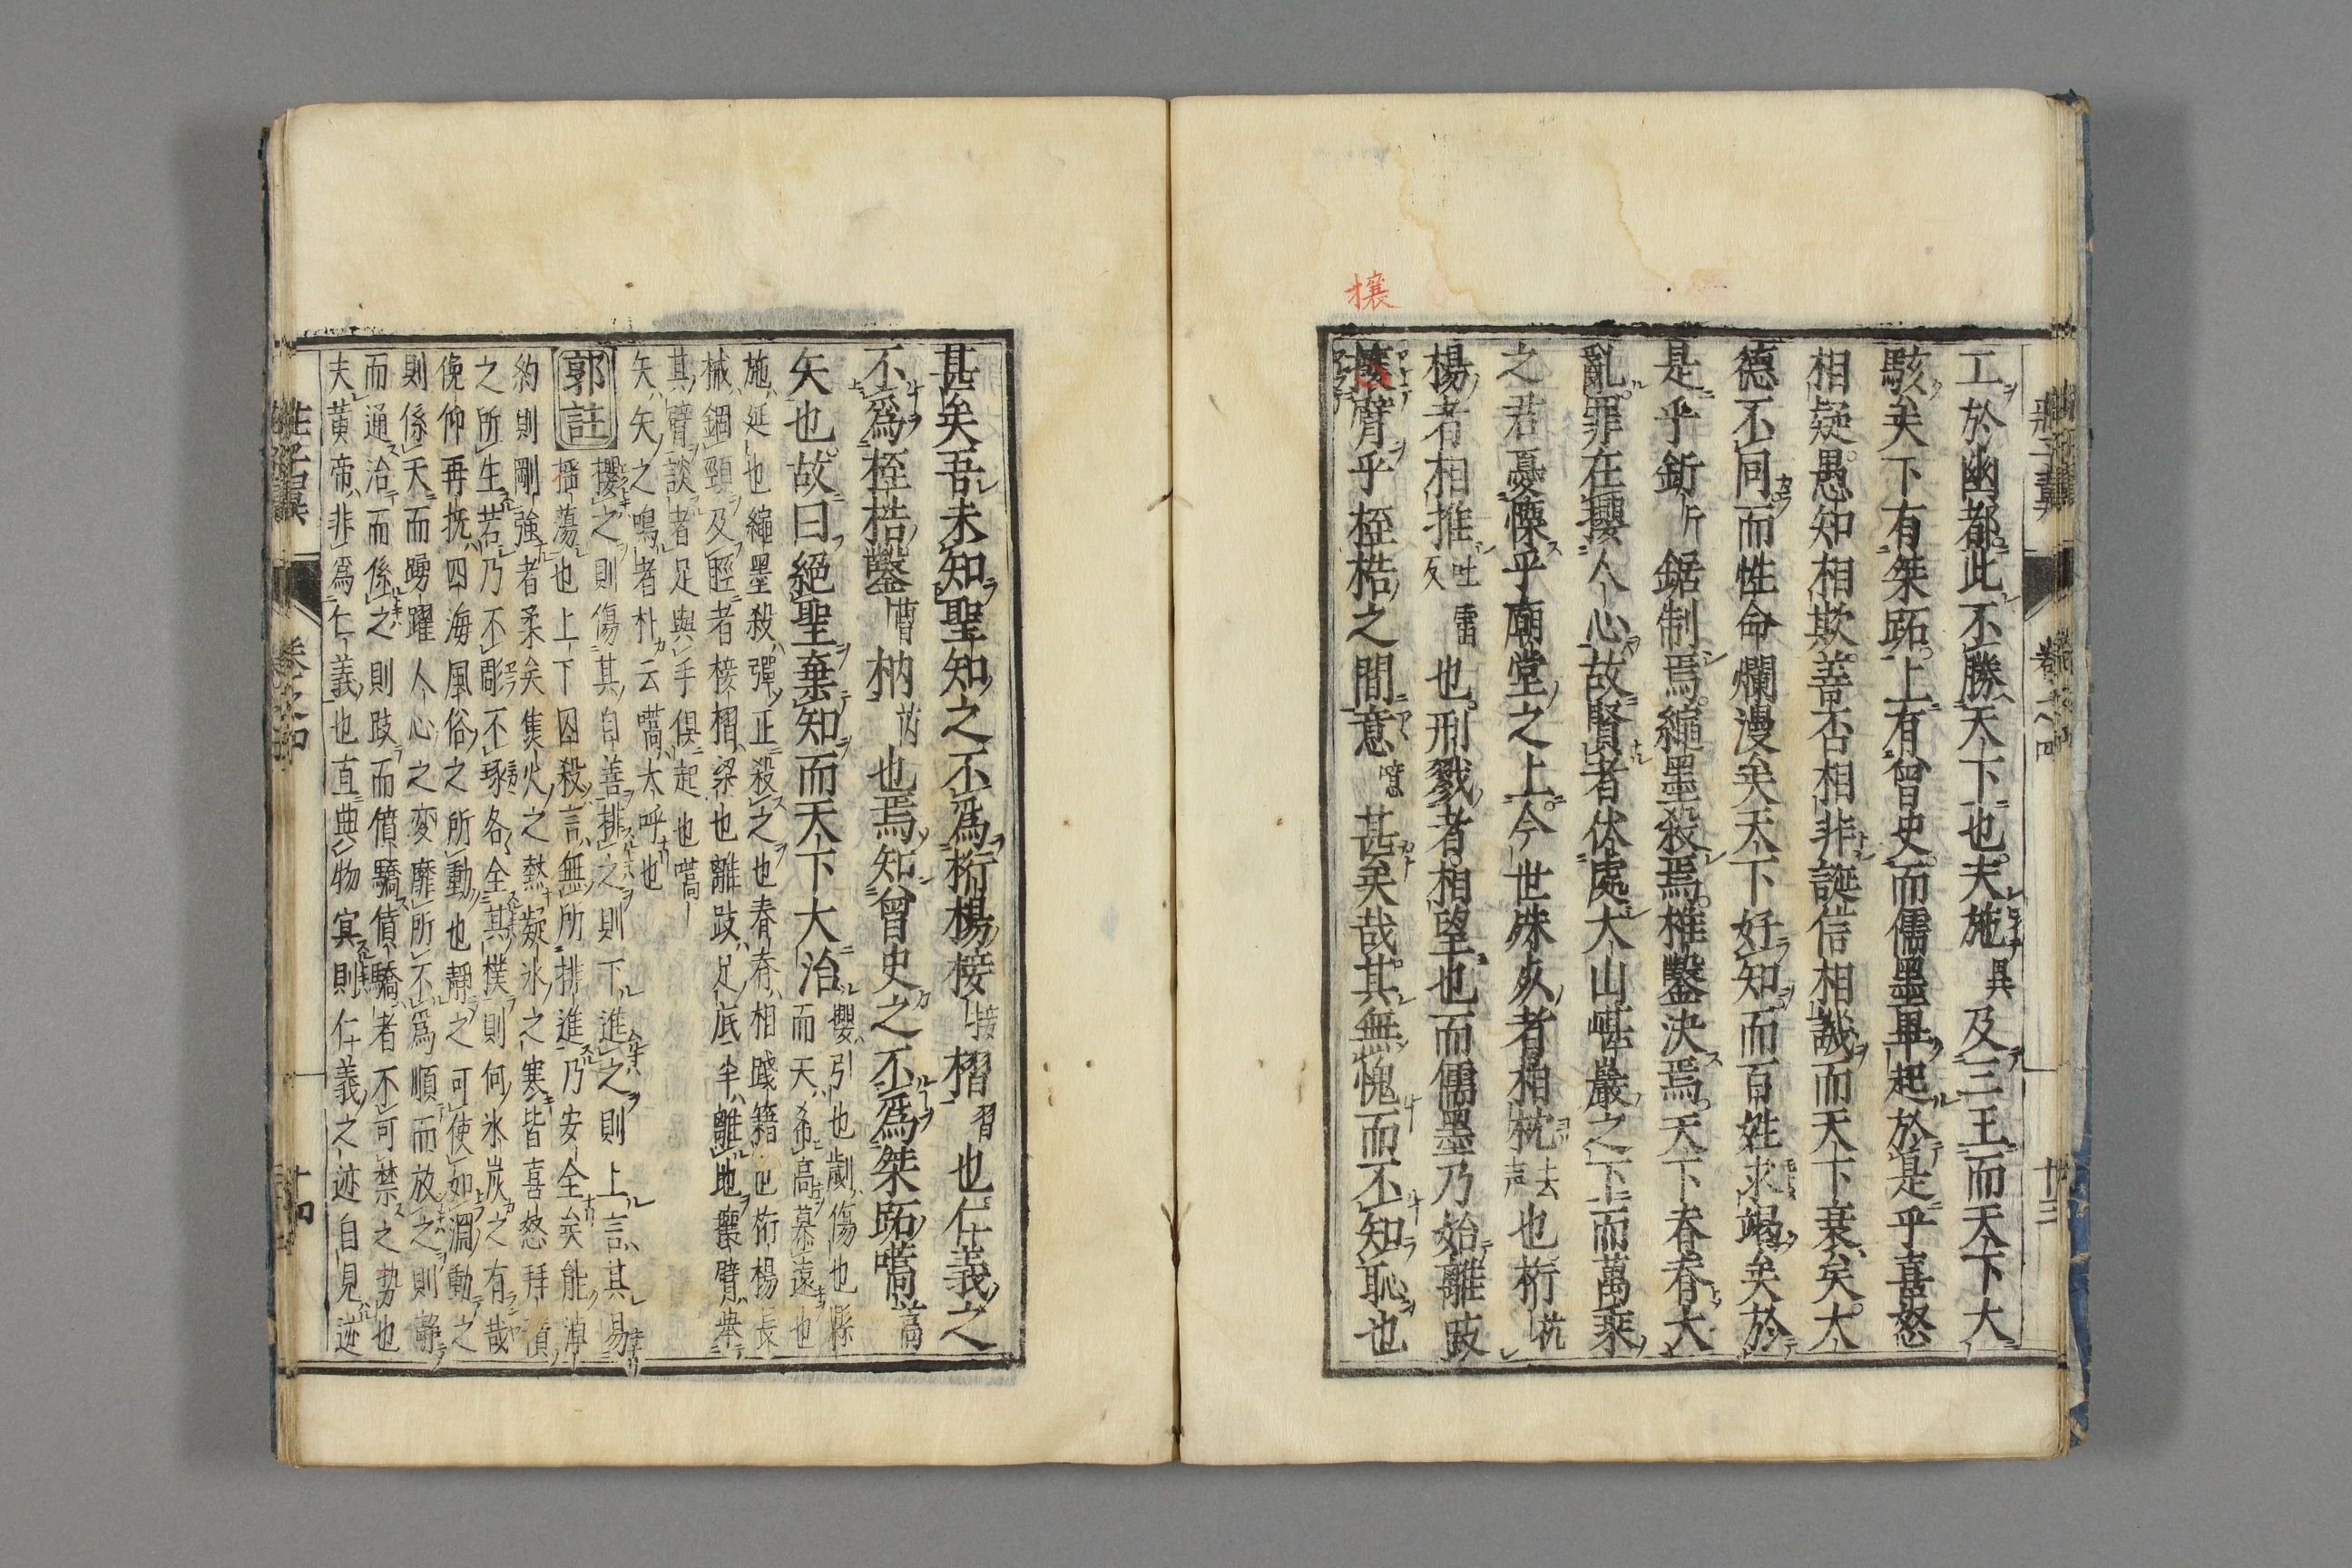 攘
工於幽都此不勝天下也夫施異及三王而天下大
駭矣下有桀跖上有曾史而儒墨畢起於是乎喜怒
相疑愚知相欺善否相非誕信相譏而天下衰矣大
德不同而性命爛漫矣天下好知而百姓求竭矣於
是乎釿斤鋸制焉繩墨殺焉椎鑿決焉天下脊脊大
亂罪在攖人心故賢者伏處大山嵁巖之下而萬乘
之君憂慄乎廟堂之上今世殊死者相枕去声也桁杭
楊者相推吐雷反也刑戮者相望也而儒墨乃始離跂
臂乎桎梏之間意噫甚矣哉其無愧而不知恥也
甚矣吾未知聖知之不爲桁楊椄接槢習也仁義之
不爲桎梏鑿漕枘芮也焉知曾史之不爲桀跖嚆蒿
矢也故曰絕聖棄知而天下大治攖引也劌傷也縣
而天希高慕遠也
施延也繩墨殺彈正殺之也脊脊相踐籍也桁楊長
械鋼頸及脛者椄槢梁也離跂足底半離地攘臂舉
其臂談者足與手俱起也嚆
矢矢之鳴者朴云嚆大呼也
郭註
攖之則傷其自善排之則下進之則上言其易
搖蕩也上下囚殺言無所排進乃安全矣能淖
約則剛強者柔矣焦火之熱凝氷之寒皆喜怒并積
之所生若乃不彫不琢各全其樸則何氷炭之有哉
俛仰再撫四海風俗之所動也靜之可使如淵動之
則係天而踴躍人心之変靡所不爲順而放之則靜
而通治而係之則跂而僨驕僨驕者不可禁之勢也
夫黃帝非爲仁義也直與物冥則仁義之迹自見迹
莊子翼
卷之四
十四